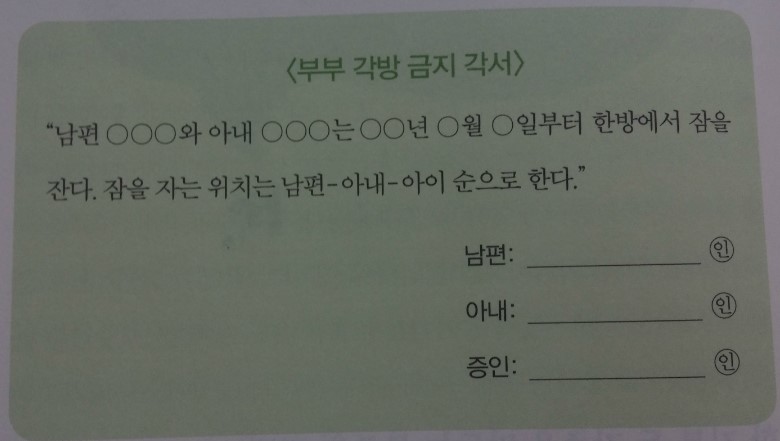 <부부 각방 금지 각서>
“남편 ○○○와 아내 ○○○는 ○○년 ○월 ○일부터 한방에서 잠을
잔다. 잠을 자는 위치는 남편-아내-아이 순으로 한다.”
남편: ____________ ㉑
아내: ____________ ㉑
증인: ____________ ㉑